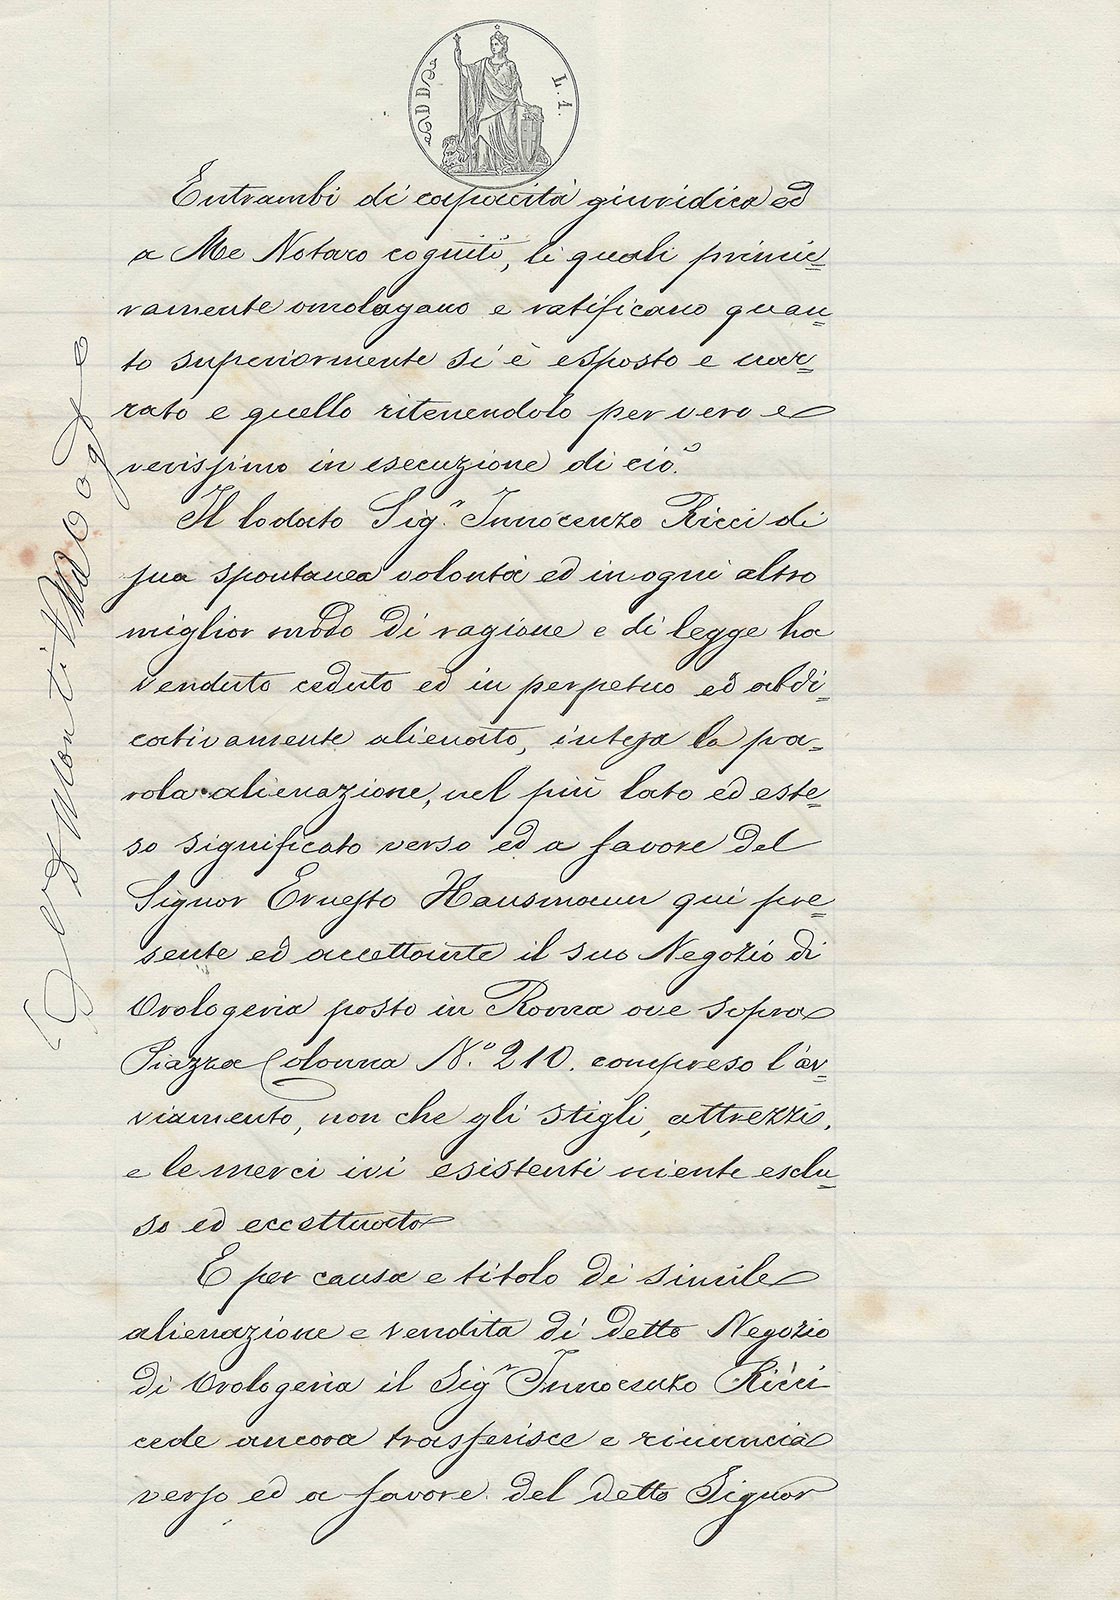 L. 1.
Entrambi di capacità giuridica ed
a Me Notaro cogniti, li quali primie=
ramente omologano e ratificano quan=
to superiormente si è esposto e nar=
rato e quello ritenendolo per vero e
verissimo in esecuzione di ciò.
Il lodato Sig.r Innocenzo Ricci di
sua spontanea volontà ed in ogni altro
miglior modo di ragione e di legge ha
venduto ceduto ed in perpetuo ed abdi=
cativamente alienato, intesa la pa=
rola alienazione, nel più lato ed este=
so significato verso ed a favore del
Signor Ernesto Hausmann qui pre=
sente ed accettante il suo Negozio di
Orologeria posto in Roma ove sopra
Piazza Colonna N.o 210. compreso l'av=
viamento, non che gli stigli, attrezzi,
e le merci ivi esistenti niente esclu=
so ed eccettuato
E per causa e titolo di simile
alienazione e vendita di detto Negozio
di Orologeria il Sig.r Innocenzo Ricci
cede ancora trasferisce e rinuncia
verso ed a favore del detto Signor